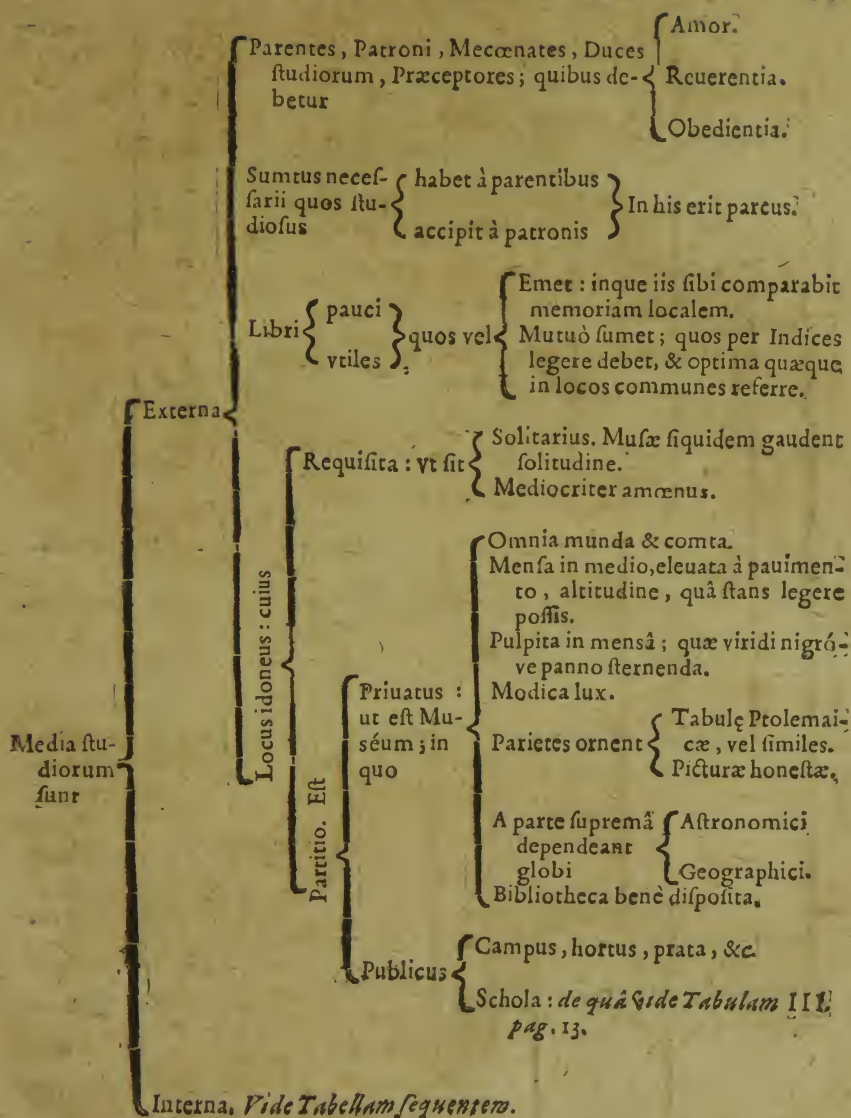 Media ſtu-
diorum
ſunt
Externa
Parentes, Patroni, Mecœnates, Duces
ſtudiorum, Præceptores; quibus de-
betur
Amor.
Reuerentia.
Obedientia.
Sumtus neceſ-
ſarii quos ſtu-
dioſus
habet à parentibus
accipit à patronis
In his erit parcus.
Libri
pauci
vtiles
quos vel
Emet: inque iis ſibi comparabit
memoriam localem.
Mutuò ſumet; quos per Indices
legere debet, & optima quæque
in locos communes referre.
Locus idoneus: cuius
Requiſita: vt ſit
Solitarius. Muſæ ſiquidem gaudent
ſolitudine.
Mediocriter amœnus.
Partitio. Eſt
Priuatus:
ut eſt Mu-
séum; in
quo
Omnia munda & comta.
Menſa in medio, eleuata à pauimen-
to, altitudine, quâ ſtans legere
poſſis.
Pulpita in mensâ; quæ viridi nigró-
ve panno ſternenda.
Modica lux.
Parietes ornent
Tabulę Ptolemai-
cæ, vel ſimiles.
Picturæ honeſtæ.
A parte ſupremâ
dependeant
globi
Aſtronomici
Geographici.
Bibliotheca benè diſpoſita.
Publicus
Campus, hortus, prata, &c.
Schola: de quâ vide Tabulam III.
pag. 13.
Interna. Vide Tabellam ſequentem.